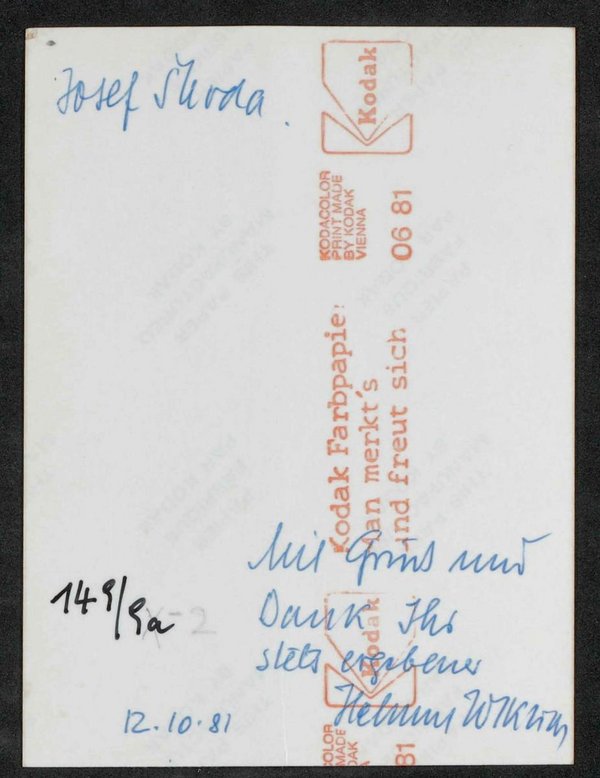 Josef Škoda.
Kodak
KODACOLOR
PRINT MADE
BY KODAK
VIENNA
06 81
Kodak Farbpapier
Man merkt's
und freut sich
Mit Gruß und
Dank Ihr
stets ergebener
Helmut
149/9a
X-2
12.10.81
Kodak
OLOR
MADE
DAK
81